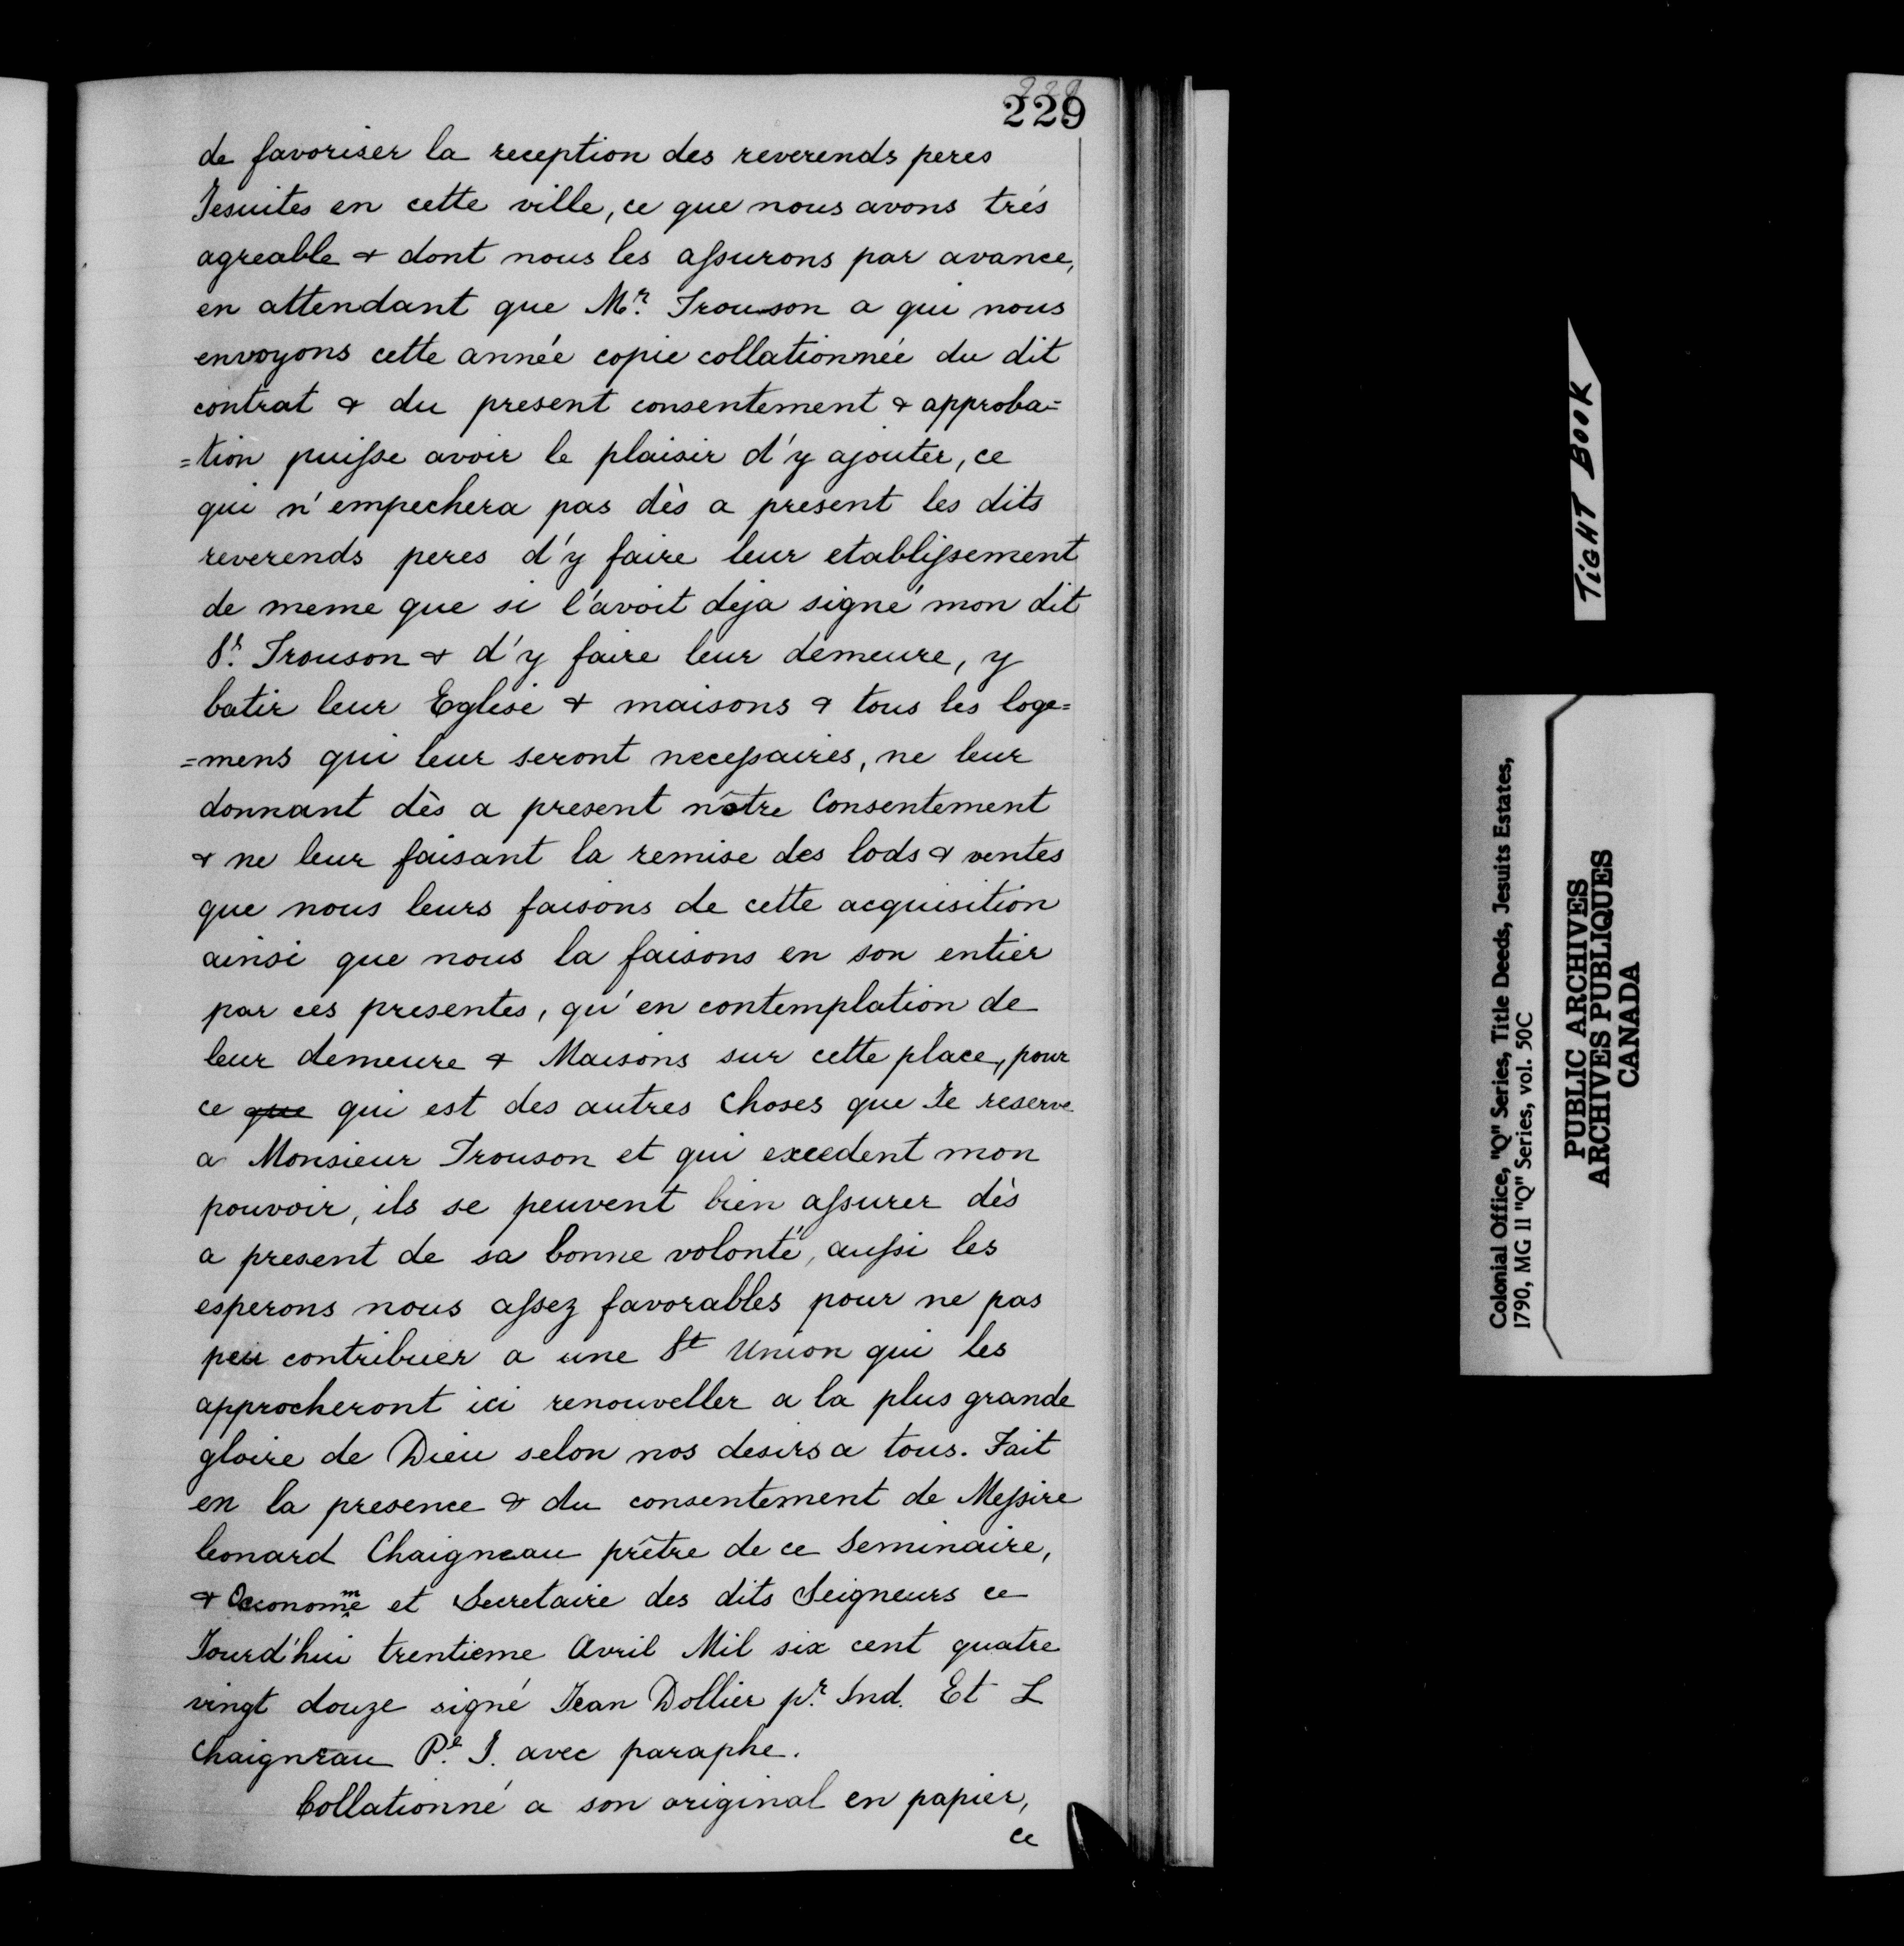 229
de favoriser la reception des reverends peres
Jesuites en cette ville, ce que nous avons trés
agreable & dont nous les assurons par avance,
en attendant que Mr. Trouson a qui nous
envoyons cette année copie collationnée du dit
contrat & du present consentement & approba=
=tion puisse avoir le plaisir d'y ajouter, ce
qui n'empechera pas dès a present les dits
reverends peres d'y faire leur etablissement
de meme que si l'avoit deja signé mon dit
Sr. Trouson & d'y faire leur demeure, y
batir leur Eglise & maisons & tous les loge=
=mens qui leur seront necessaires, ne leur
donnant dès a present nôtre Consentement
& ne leur faisant la remise des lods & ventes
que nous leurs faisons de cette acquisition
ainsi que nous la faisons en son entier
par ces presentes, qu'en contemplation de
leur demeure & Maisons sur cette place, pour
ce que qui est des autres choses que Je reserve
a Monsieur Trouson et qui excedent mon
pouvoir, ils se peuvent bien assurer dès
a present de sa bonne volonté, aussi les
esperons nous assez favorables pour ne pas
peu contribuer a une St Union qui les
approcheront ici renouveller a la plus grande
gloire de Dieu selon nos desirs a tous. Fait
en la presence & du consentement de Messire
Leonard Chaigneau prêtre de ce Seminaire,
& Oeconomme et Secretaire des dits Seigneurs ce
Jourd'hui trentieme Avril Mil six cent quatre
vingt douze signé Jean Dollier pr. Ind. Et L
Chaigneau Pe. J. avec paraphe.
Collationné a son original en papier,
ce
TIGHT BOOK
Colonial Office, "Q" Series, Title Deeds, Jesuits Estates,
1790, MG 11 "Q" Series, vol. 50C
PUBLIC ARCHIVES
ARCHIVES PUBLIQUES
CANADA